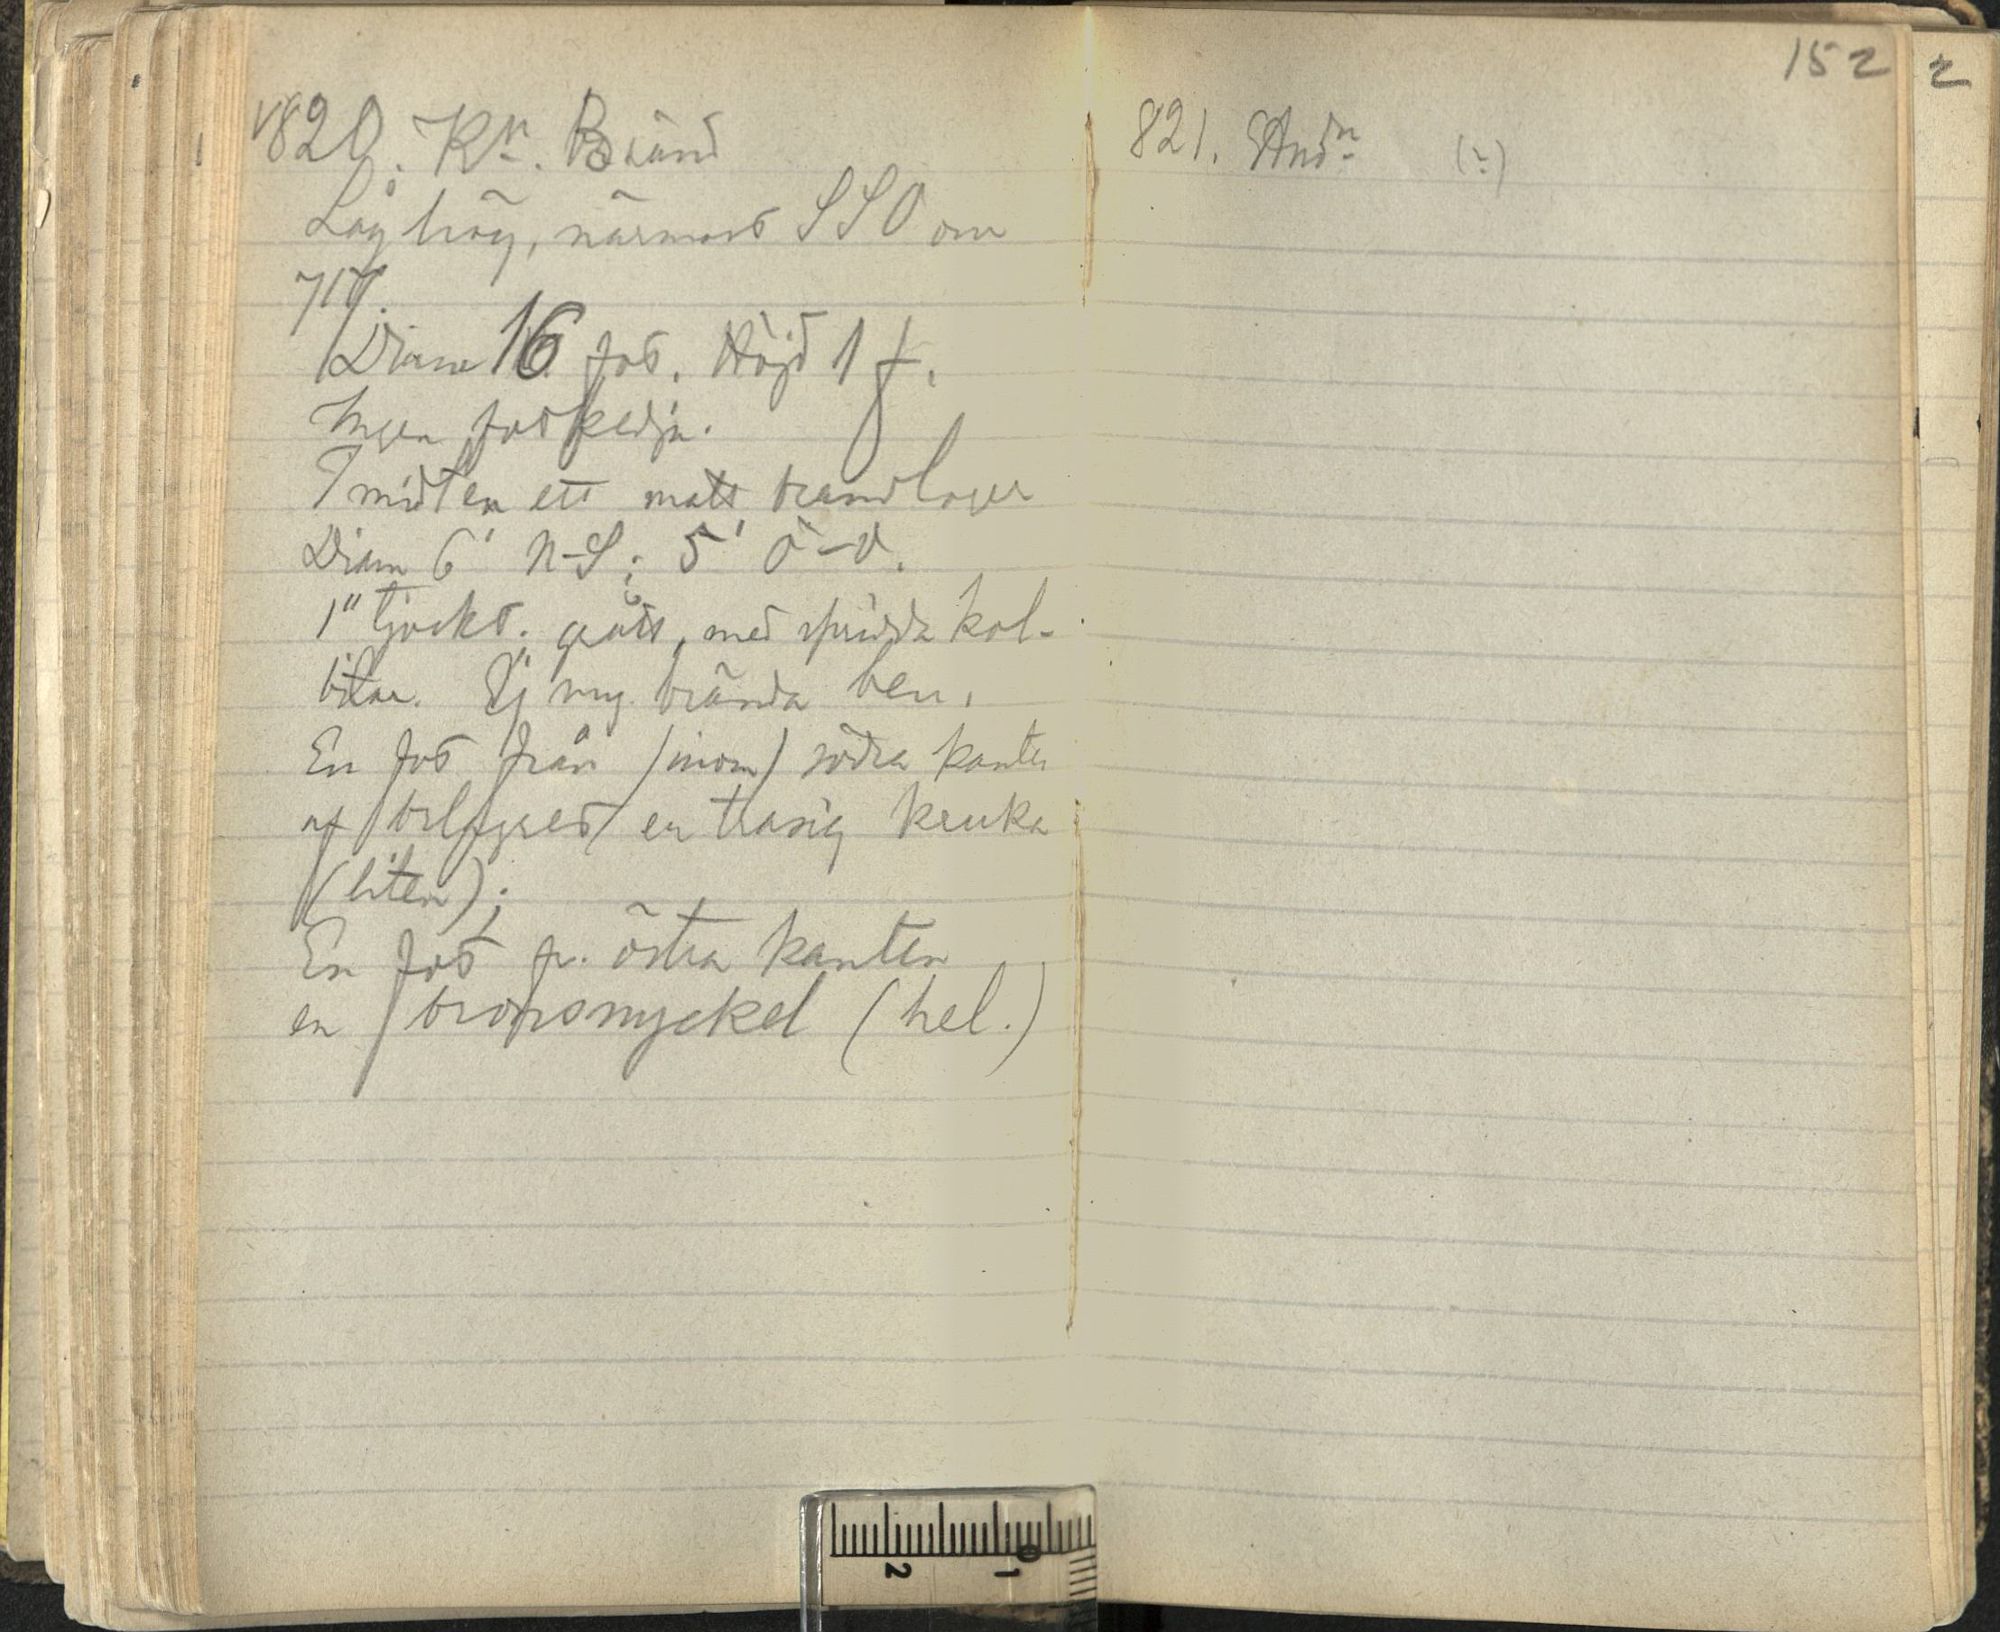 820. Kn. Bränd
Låg hög, närmast SSO om
717.
Diam 16 fot. Höjd 1 f.
Ingen fotkedja.
I midten ett matt brandlager
Diam 6' N-S; 5' Ö-V.
1" tjockt. grått, med spridda kol-
bitar. Ej myc brända ben.
En fot från (inom) södra kanten
af brlagret en trasig kruka
(liten);
En fot fr. östra kanten
en bronsnyckel (hel.)
152
821. And^n (?)
2
0 1 2